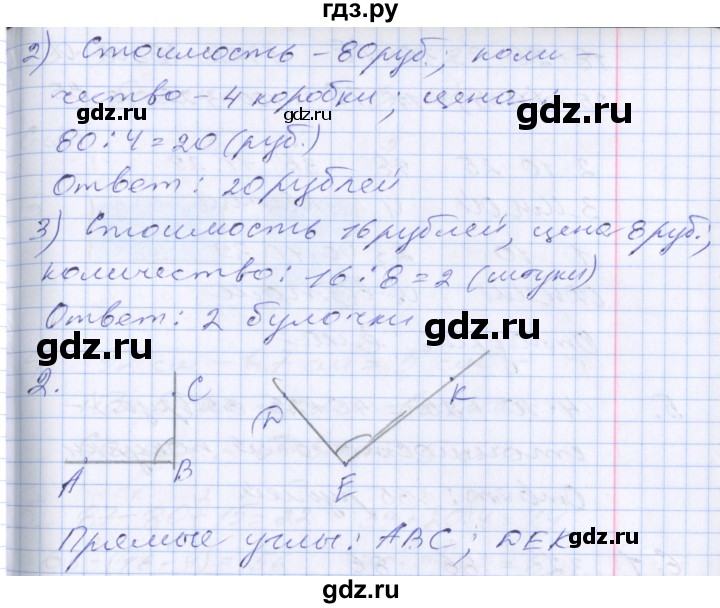 гдз.ру
2) Стоимость - 80 руб.; коли-
чество - 4 коробки; цена
gdz.ru gdz.ru
80 : 4 = 20 (руб.)
Ответ: 20 рублей
gdz.ru
3) Стоимость 16 рублей, цена 8 руб.;
gdz.ru
количество: 16 : 8 = 2 (штуки)
Ответ: 2 булочки
gdz.ru
gdz.ru
2.
C
D
K
A
B
E
gdz.ru gdz.ru
Прямые углы: ABC; DEK
gdz.ru gdz.ru